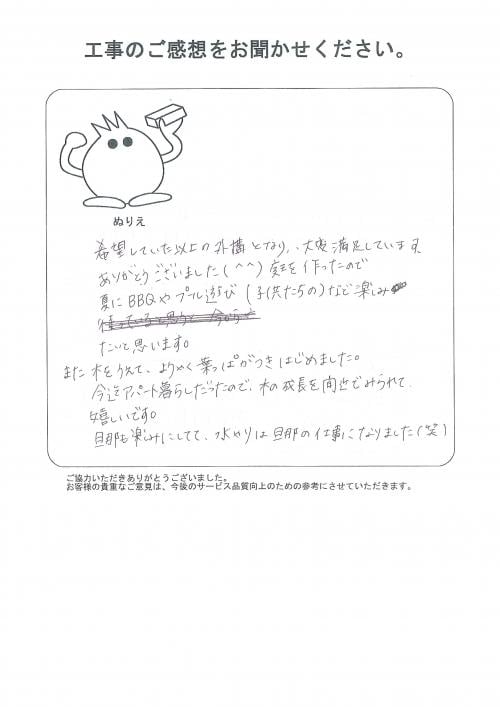 工事のご感想をお聞かせください。
ぬりえ
希望していた以上の外構となり、大変満足しています。
ありがとうございました(^^) 庭を作ったので
夏にBBQやプール遊び(子供たちの)など楽しみ
たいと思います。
また木をうえて、ようやく葉っぱがつきはじめました。
今迄アパート暮らしだったので、木の成長を間近でみられて
嬉しいです。
旦那も楽しみにしてて、水やりは旦那の仕事になりました(笑)
ご協力いただきありがとうございました。
お客様の貴重なご意見は、今後のサービス品質向上のための参考にさせていただきます。